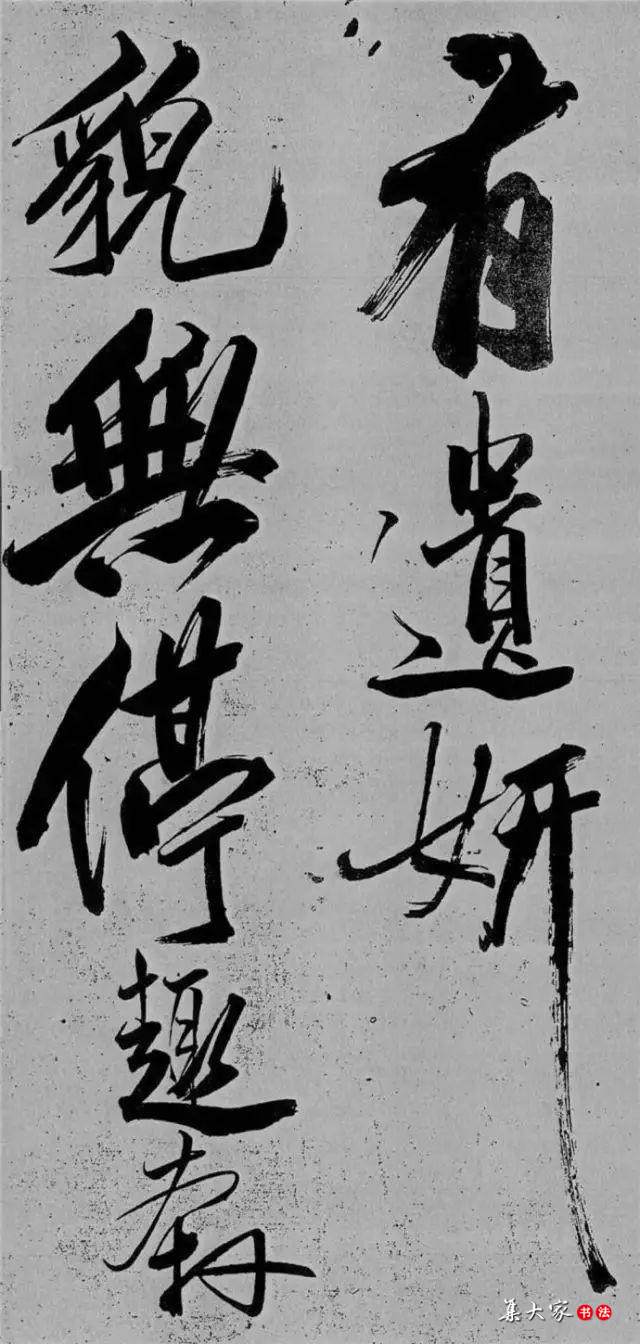 有遺妍
貌無停趣奔
集大家 书法